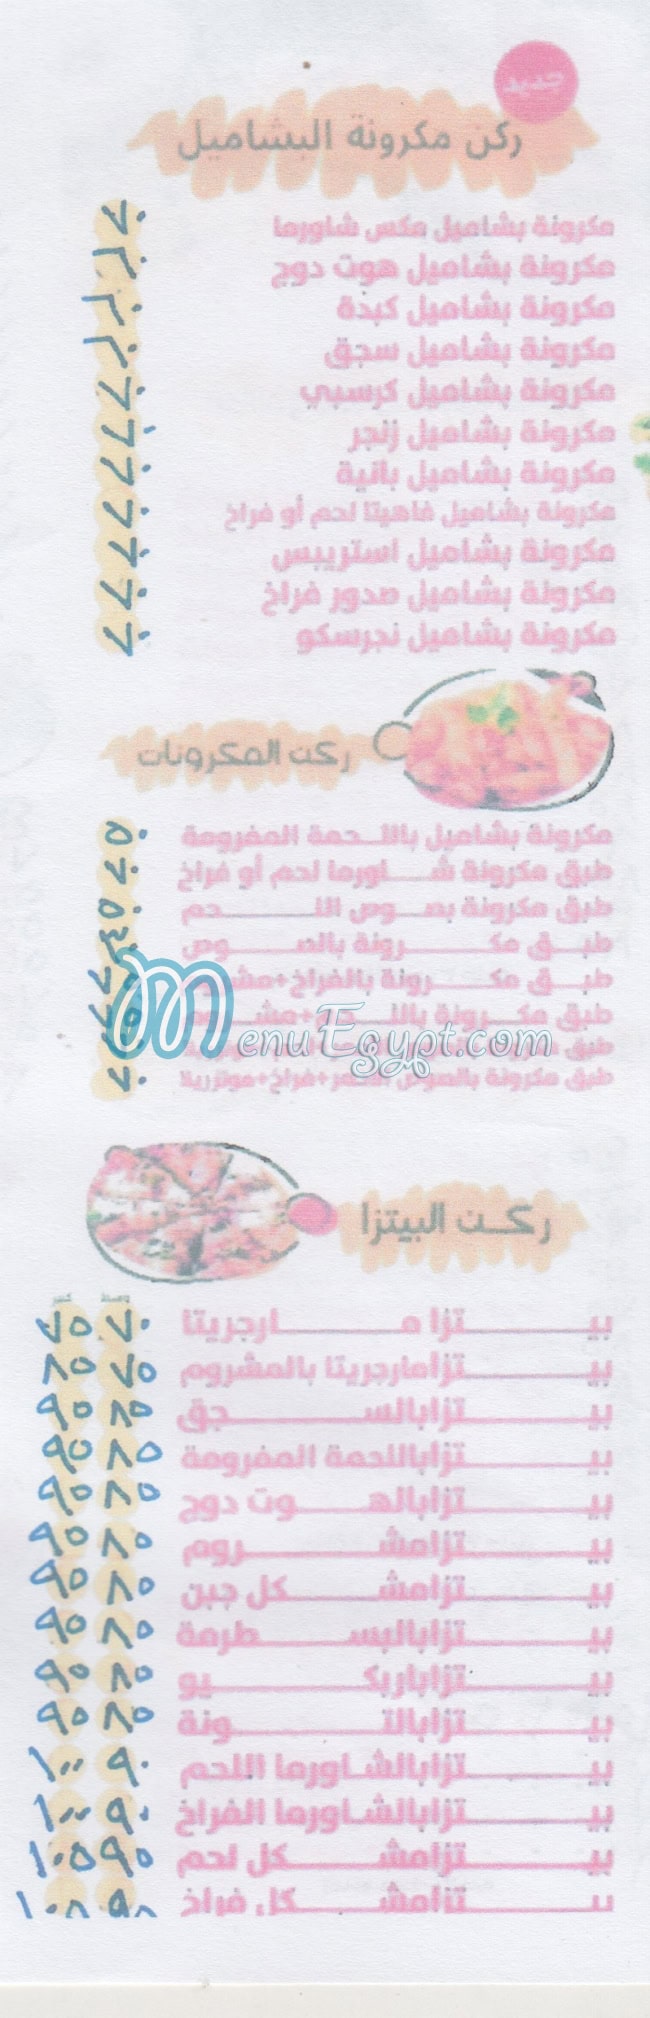 جديد
ركن مكرونة البشاميل
مكرونة بشاميل مكس شاورما ٧٠
مكرونة بشاميل هوت دوج
مكرونة بشاميل كبدة
مكرونة بشاميل سجق
مكرونة بشاميل كرسبي ٧٠
مكرونة بشاميل زنجر ٧٠
مكرونة بشاميل بانية ٧٠
مكرونة بشاميل فاهيتا لحم أو فراخ ٧٠
مكرونة بشاميل استريبس ٧٠
مكرونة بشاميل صدور فراخ ٧٠
مكرونة بشاميل نجرسكو ٧٠
ركن المكرونات
مكرونة بشاميل باللحمة المفرومة ٥٠
طبق مكرونة شاورما لحم أو فراخ ٧٠
طبق مكرونة بصوص اللحم
طبق مكرونة بالصوص
طبق مكرونة بالفراخ+
طبق مكرونة
طبق مكرونة
طبق مكرونة بالصوص +فراخ+موتزريلا ٧٠
MenuEgypt.com
ركن البيتزا
وسط كبير
بيتزا مارجريتا ٧٠ ٧٥
بيتزامارجريتا بالمشروم ٧٥ ٨٥
بيتزابالسجق ٨٥ ٩٥
بيتزاباللحمة المفرومة ٨٥ ٩٥
بيتزابالهوت دوج ٨٥ ٩٥
بيتزامشروم ٨٥ ٩٥
بيتزامشكل جبن ٨٥ ٩٥
بيتزابالبسطرمة ٨٥ ٩٥
بيتزاباربكيو ٨٥ ٩٥
بيتزابالتونة ٨٥ ٩٥
بيتزابالشاورما اللحم ٩٠ ١٠٠
بيتزابالشاورما الفراخ ٩٠ ١٠٠
بيتزامشكل لحم ٩٥ ١٠٥
بيتزامشكل فراخ